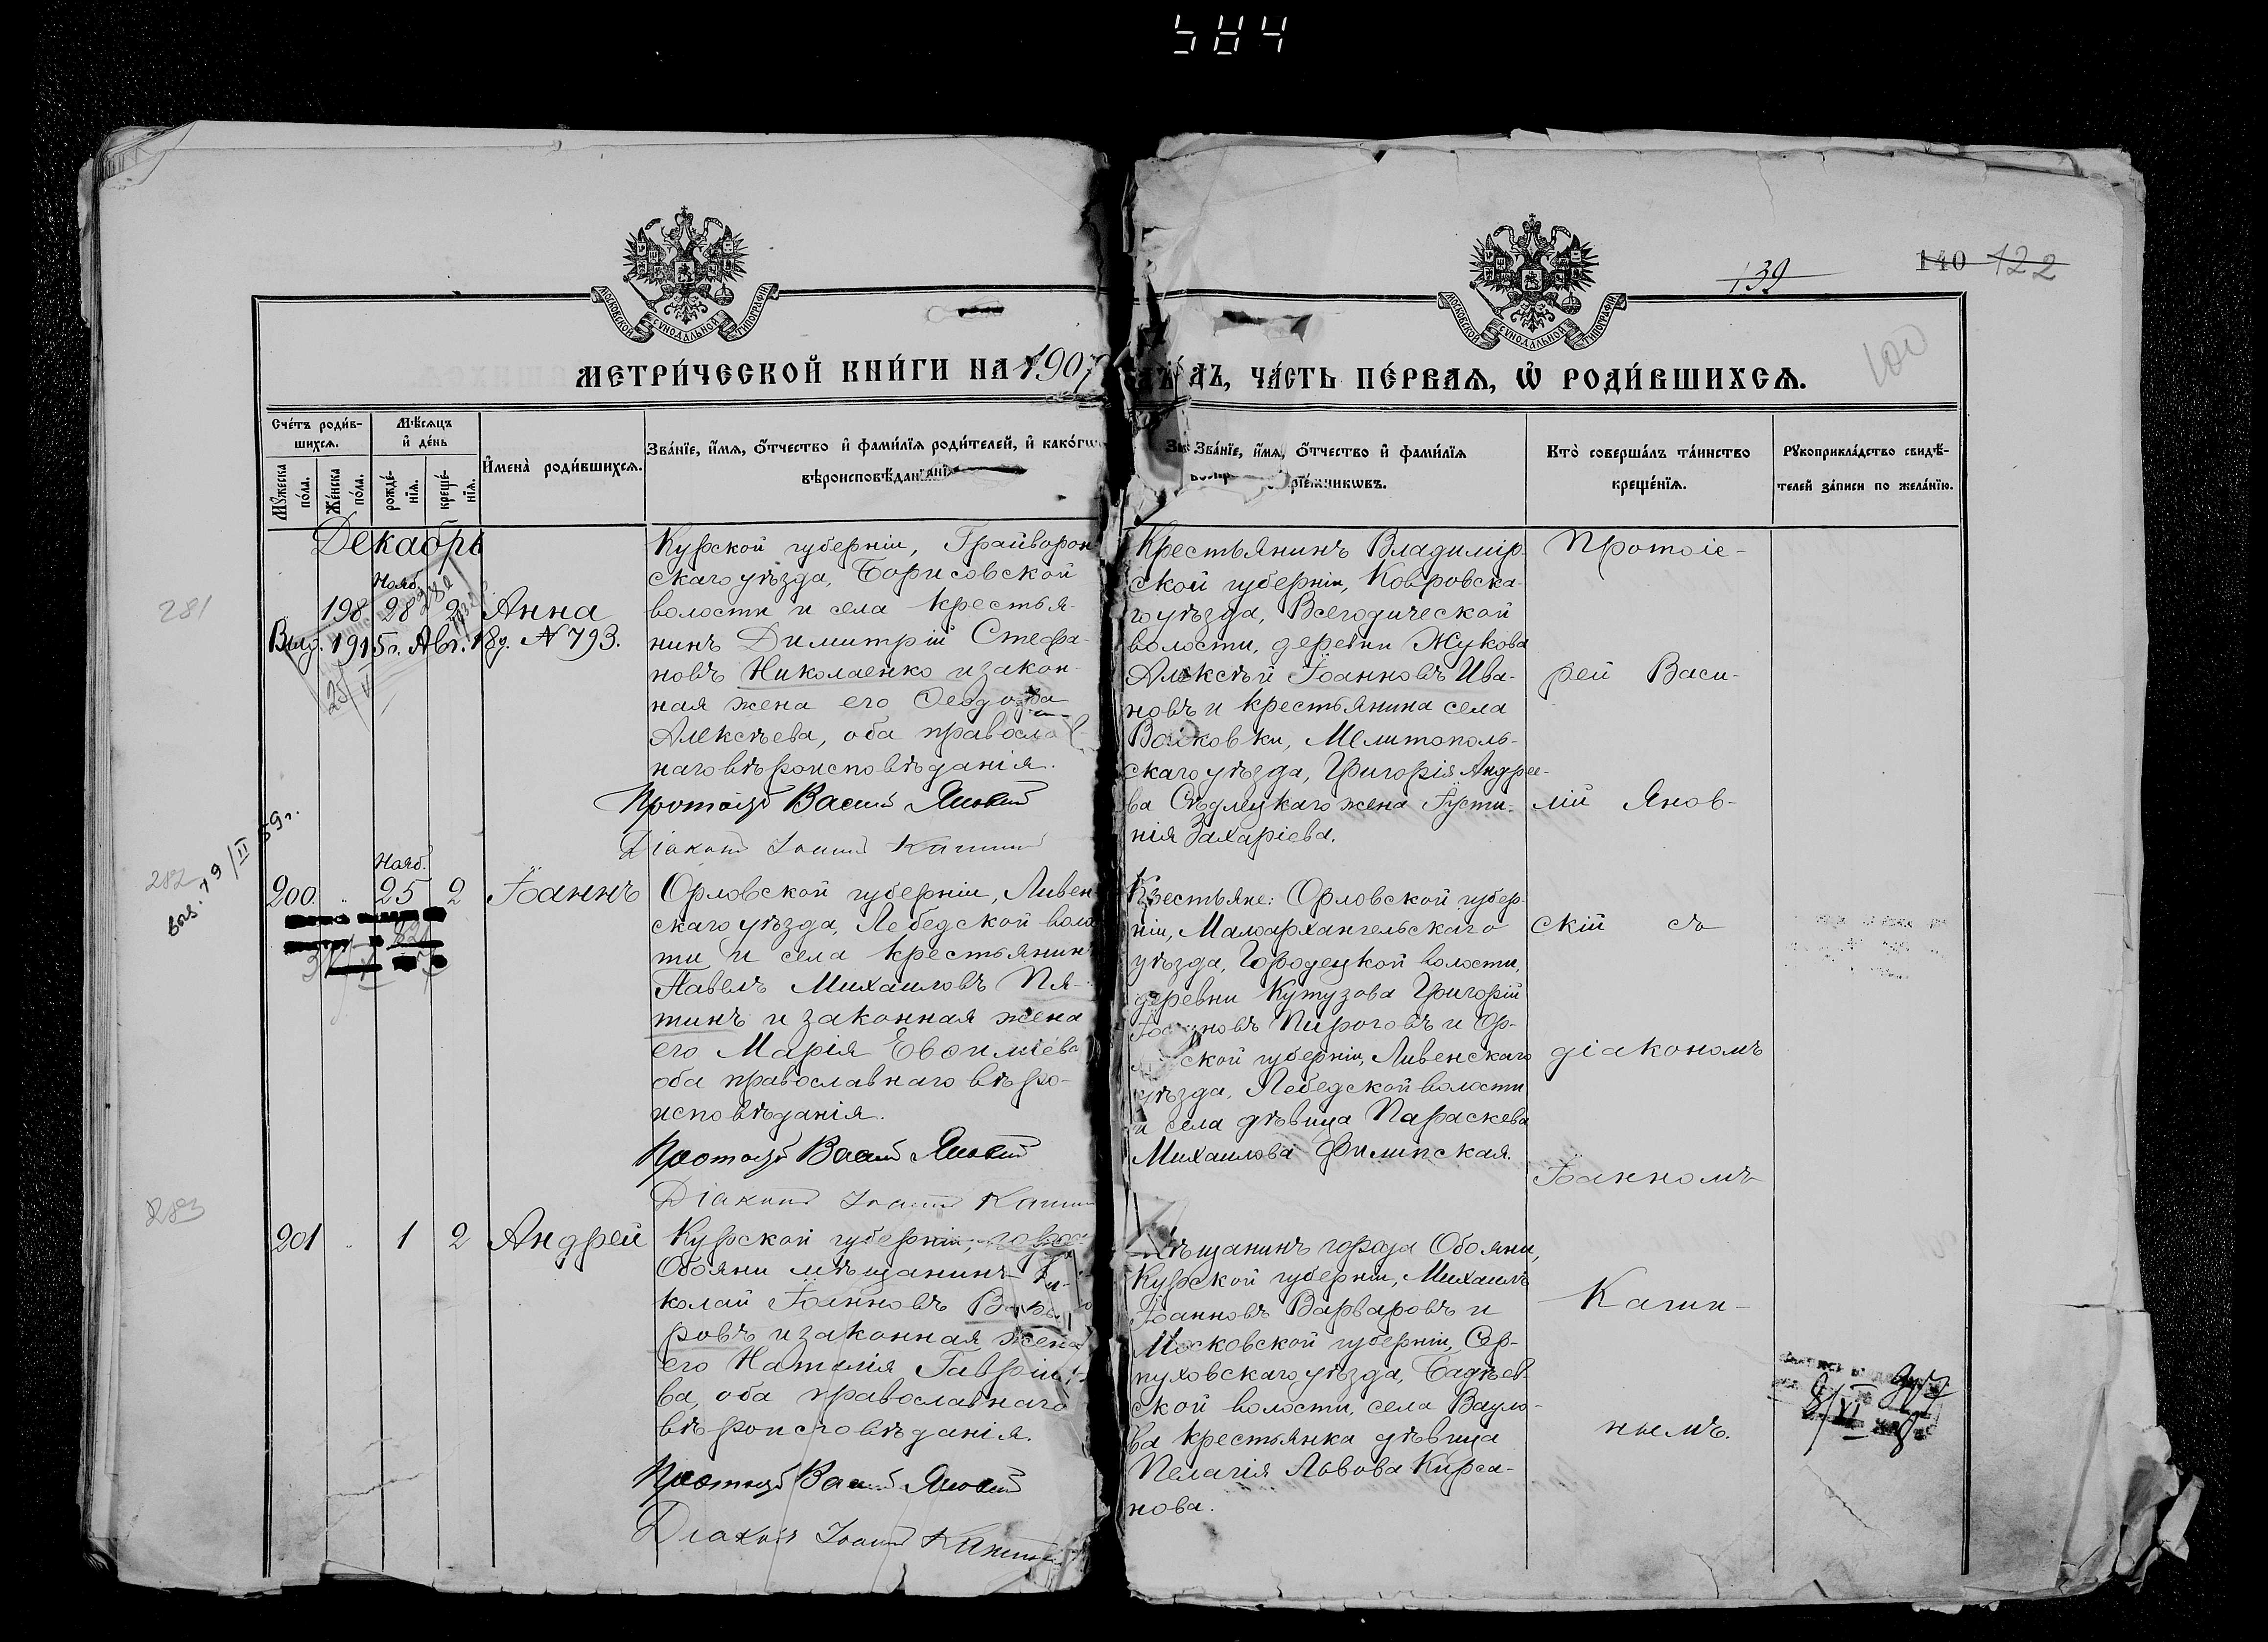 584
139
140 122
100
МОСКОВСКОЙ СѴНОДАЛЬНОЙ ТИПОГРАФІИ
МОСКОВСКОЙ СѴНОДАЛЬНОЙ ТИПОГРАФІИ
МЕТРИ́ЧЕСКОЙ КНИ́ГИ НА 1907
ДЪ, ЧА́СТЬ ПЕ́РВАѦ, Ѽ РОДИ́ВШИХСѦ.
Сче́тъ роди́в-
шихсѧ.
Мѣ́сѧцъ
и҆ де́нь
Мꙋ́жеска
по́ла.
Же́нска
по́ла.
рожде́-
нїѧ.
креще́-
нїѧ.
И҆мена̀ роди́вшихсѧ.
Зва́нїе, и҆́мѧ, ѻ҆́тчество и҆ фами́лїѧ роди́телей, и҆ како́гѡ
вѣроисповѣ́данїѧ
Зва́нїе, и҆́мѧ, ѻ҆́тчество и҆ фами́лїѧ
воспрїе́мникѡвъ.
Кто̀ соверша́лъ та́инство
креще́нїѧ.
Рꙋкоприкла́дство свидѣ́-
телей за́писи по жела́нїю.
Декабрь
281
Нояб.
198 28 2 Анна
Выд. 1915г. Авг. 18д. N 793.
Курской губерніи, Грайворон
скаго уѣзда, Борисовской
волости и села крестья-
нинъ Димитрій Стефа-
новъ Николаенко и закон-
ная жена его Ѳеодора
Алексѣева, оба православ-
наго вѣроисповѣданія.
Протоіер Василій Яновскій
Діаконъ Іоаннъ Кашинъ
Крестьянинъ Владимір-
ской губерніи, Ковровска-
го уѣзда, Всегодической
волости, деревни Жукова
Алексѣй Іоанновъ Ива-
новъ и крестьянина села
Волковки, Мелитополь-
скаго уѣзда, Григорія Андрее-
ва Сѣдлецкаго жена Іусти-
нія Захаріева.
Протоіе-
рей Васи-
лій Янов-
скій съ
діакономъ
Іоанномъ
Каши-
нымъ.
282
выд. 19/II 59г.
Нояб.
200 " 25 2 Іоаннъ
Орловской губерніи, Ливен-
скаго уѣзда, Лебедской воло
ти и села крестьянинъ
Павелъ Михаиловъ Пя-
тинъ и законная жена
его Марія Евѳиміева
оба православнаго вѣро-
исповѣданія.
Протоіер Василій Яновскій
Діаконъ Іоаннъ Кашинъ
Крестьяне: Орловской губер-
ніи, Малоархангельскаго
уѣзда, Городецкой волости,
деревни Кутузова Григорій
Іоанновъ Пироговъ и Ор-
ловской губерніи, Ливенскаго
уѣзда, Лебедской волости
и села дѣвица Параскева
Михаилова Филипская.
283
201 " 1 2 Андрей
Курской губерніи, города
Обояни мѣщанинъ Ни-
колай Іоанновъ Варва-
ровъ и законная жена
его Наталія Гавріило-
ва, оба православнаго
вѣроисповѣданія.
Протоіер Василій Яновскій
Діаконъ Іоаннъ Кашинъ
Мѣщанинъ города Обояни,
Курской губерніи, Михаилъ
Іоанновъ Варваровъ и
Московской губерніи, Сер-
пуховскаго уѣзда, Бадѣев-
ской волости, села Вауло-
ва крестьянка дѣвица
Пелагія Львова Кирса-
нова.